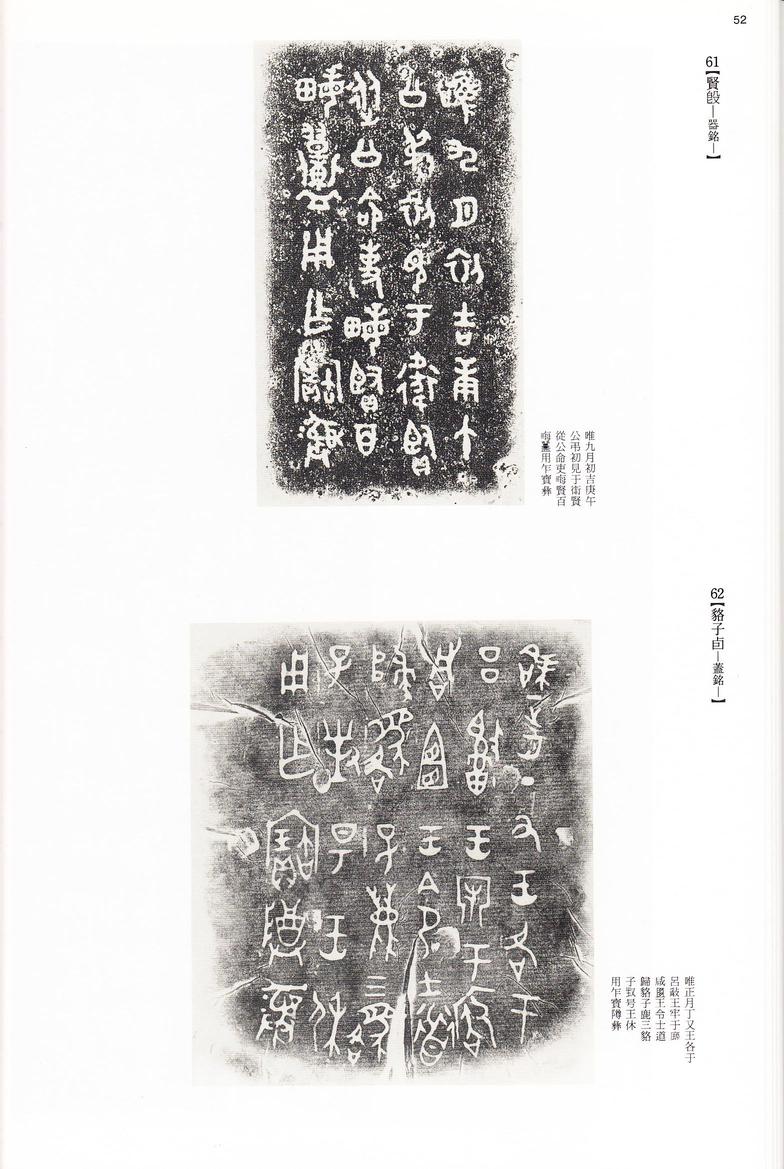 52
61【賢𣪘—器銘—】
唯九月初吉庚午
公弔初見于衛賢
從公命吏晦賢百
晦用乍寶彝
62【貉子卣—蓋銘—】
唯正月丁丑王各于
呂王牢于
咸王令士道
歸貉子鹿三貉
子對王休
用乍寶障彝